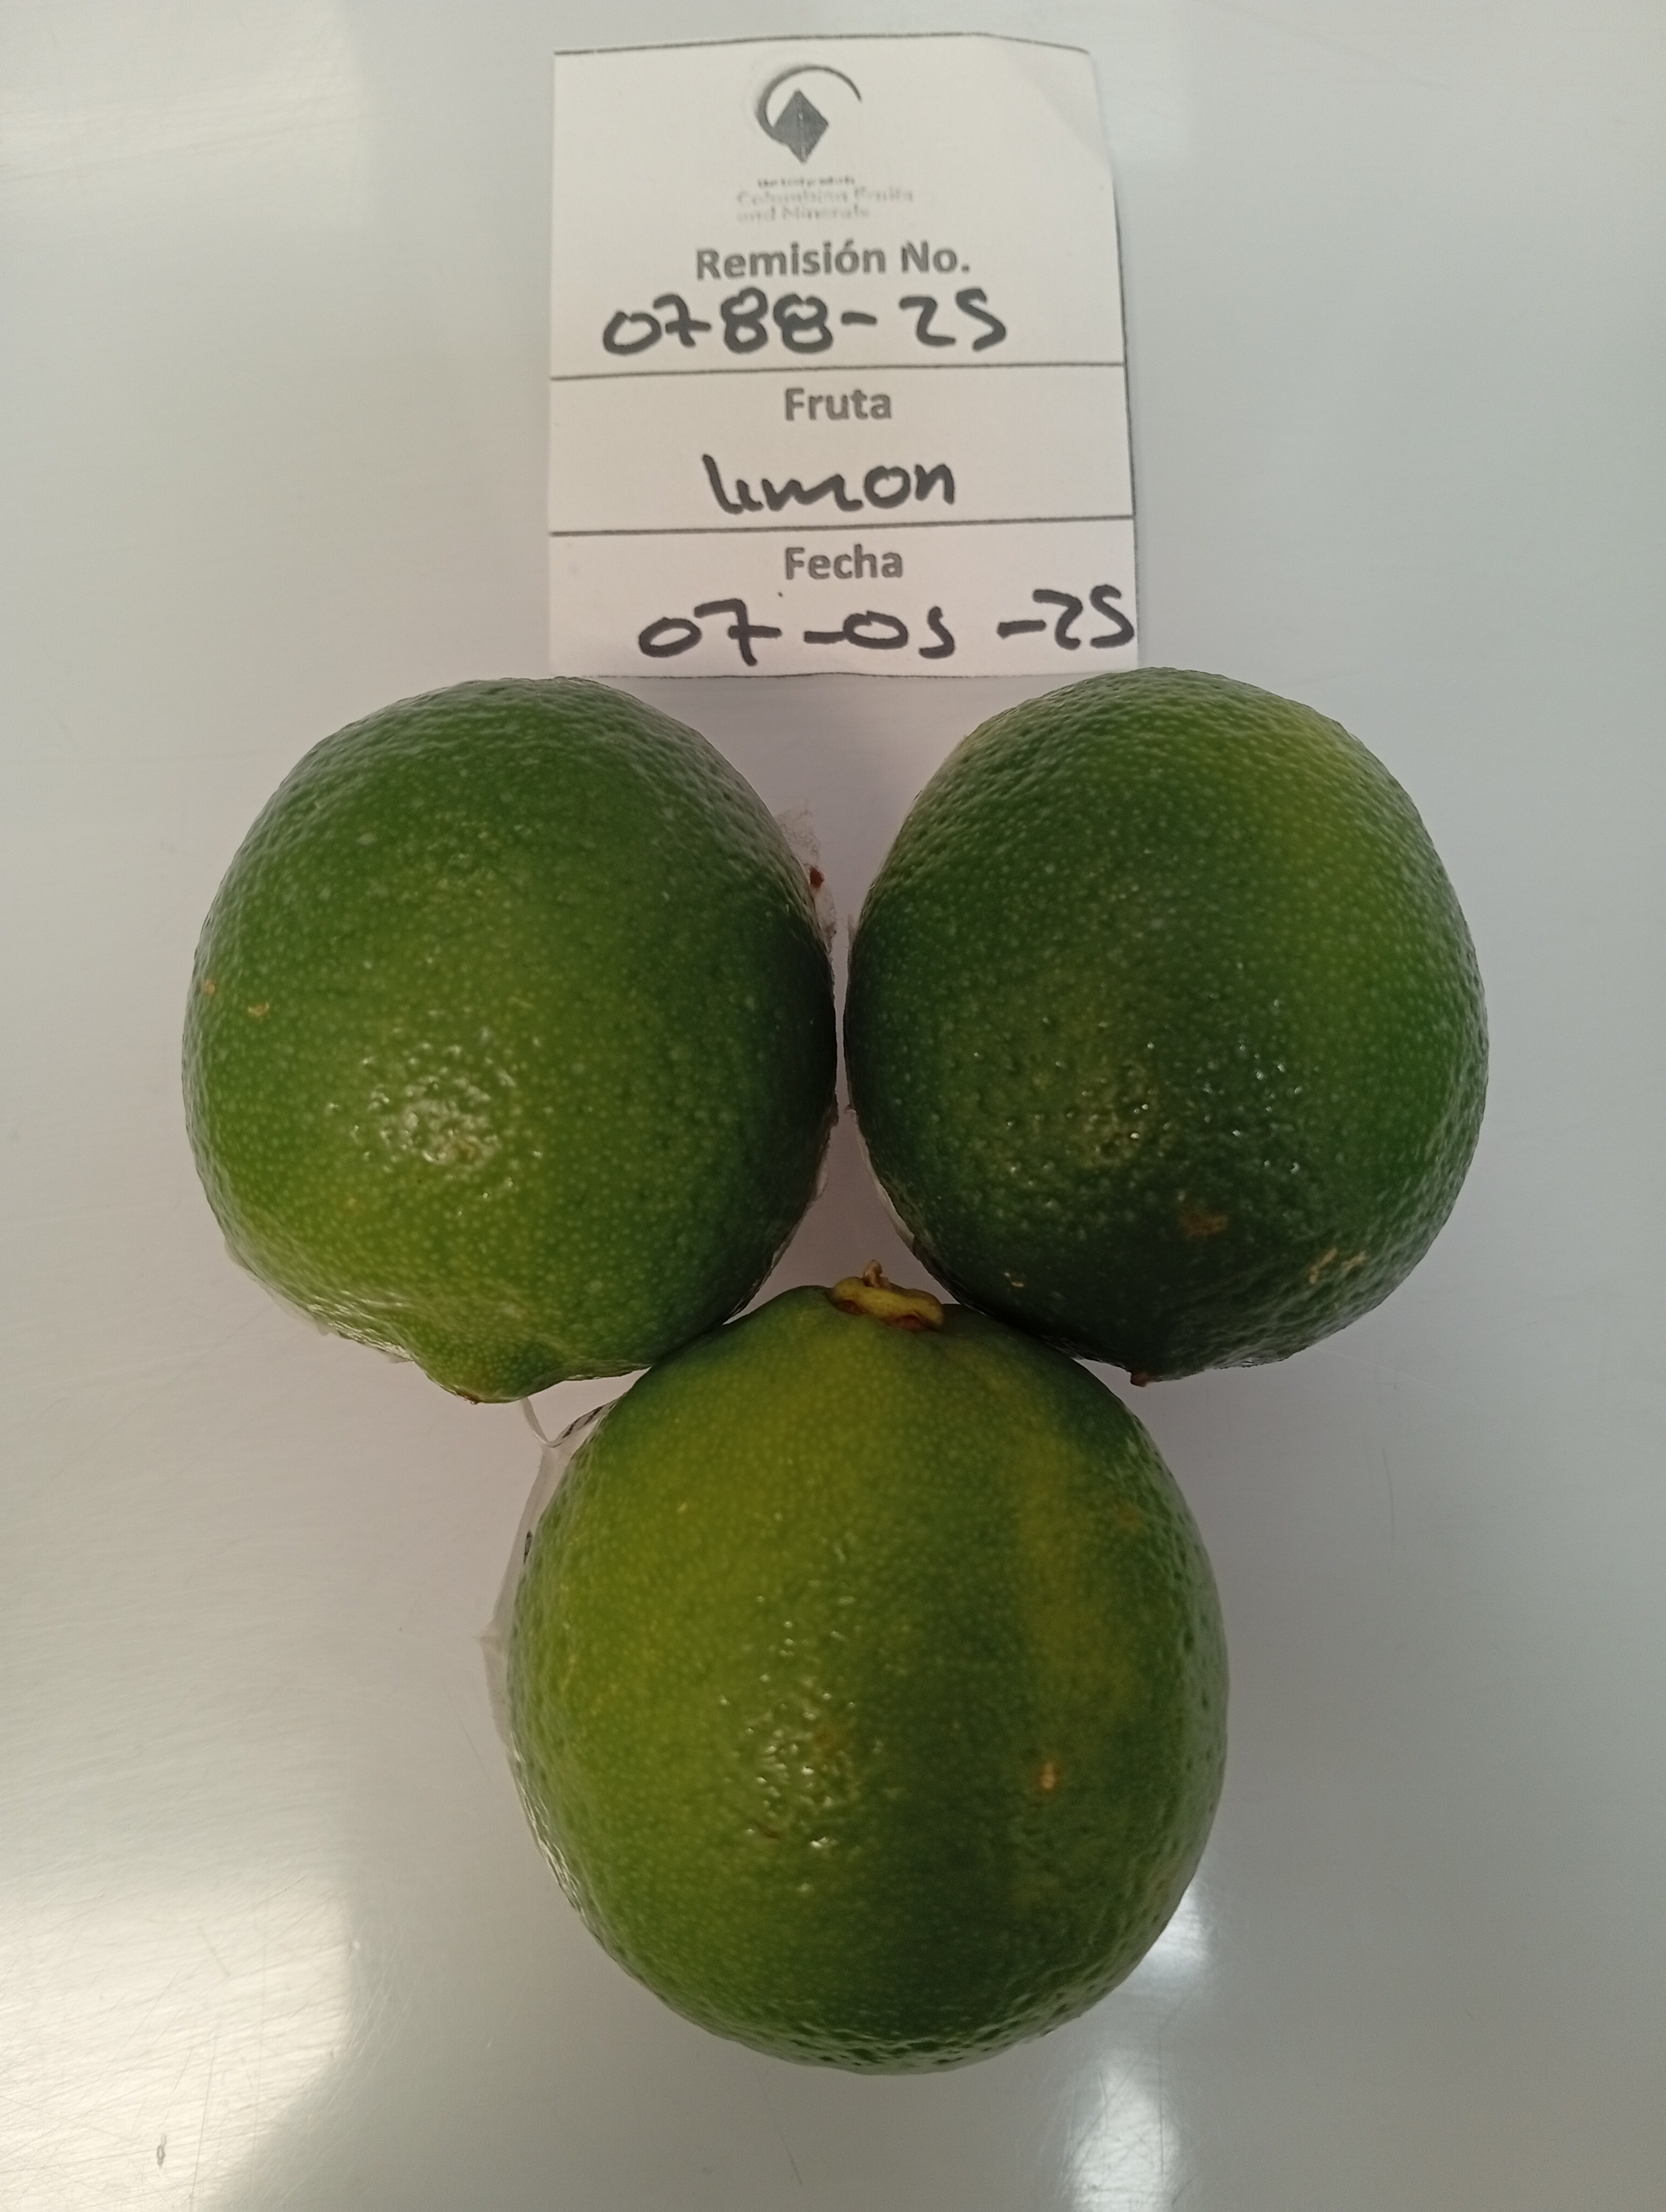 Colombian Fruits
and Minerals
Remisión No.
0788-25
Fruta
limon
Fecha
07-05-25